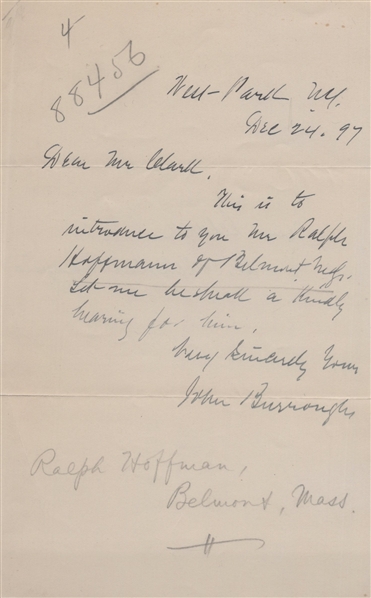 4
88456
West-Park N.Y.
Dec 24. 97
Dear Mr Clark,
This is to
introduce to you Mr Ralph
Hoffmann of Belmont
Let me bespeak a kindly
hearing for him.
Very Sincerely Yours
John Burroughs
Ralph Hoffman,
Belmont, Mass.